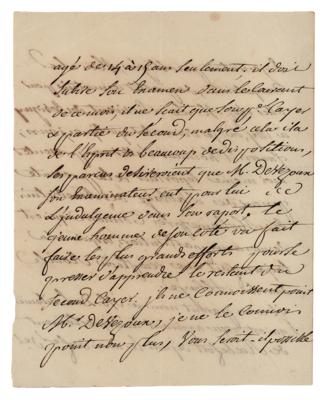 agé de 14 à 15 ans seulement. il doit
subir son Examen dans le courant
de ce mois il ne sait que son p.r Cayer
et partie du Second, malgré cela il a
de l'Esprit et beaucoup de dispositions,
ses parens desireroient que M. Dehezoux
son Examinateur eut pour lui de
l'indulgence dans son raport. le
jeune homme de son coté va fait
faire les plus grands efforts pour se
presser d'apprendre le restent du
Second Cayer. ils ne Connoissent point
M.r Dehezoux, je ne le connois
point non plus, Vous seroit-il possible